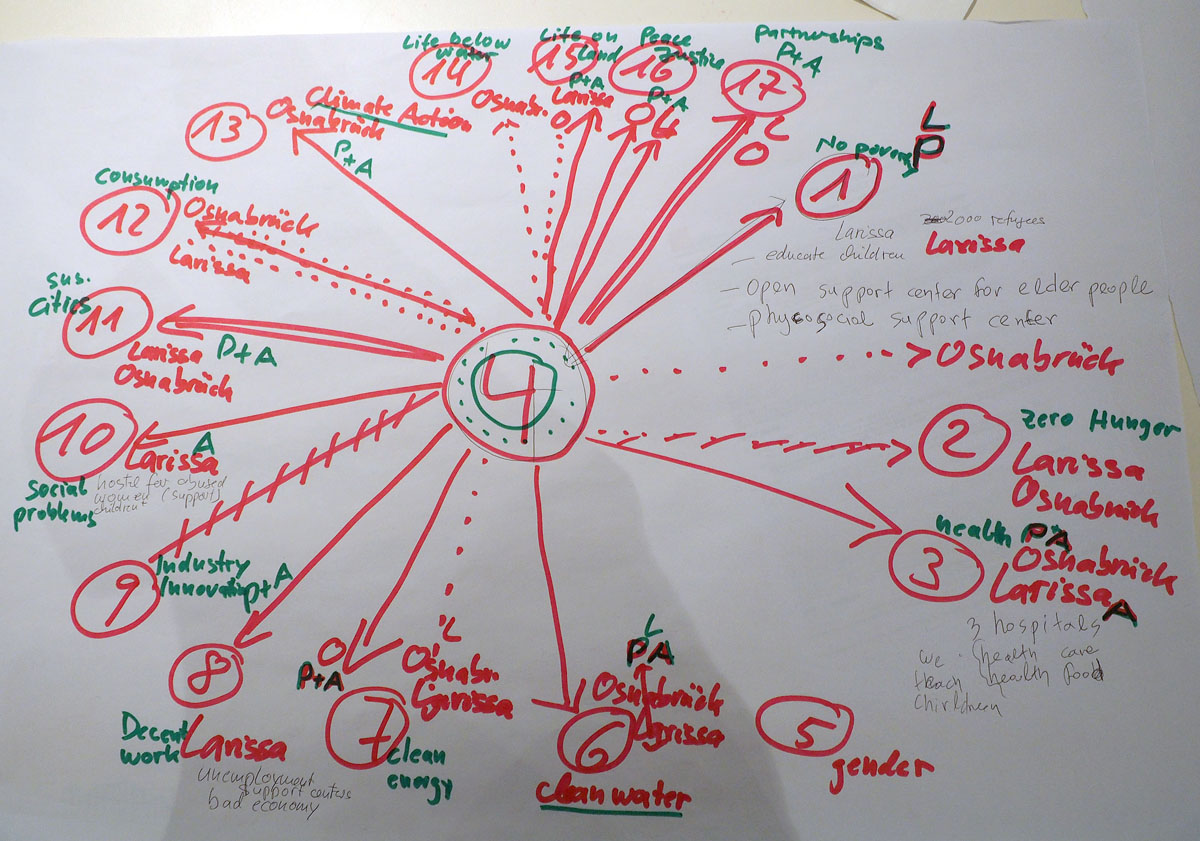 Life below
water
14
Osnabr.
Life on
Land
15
P+A
Larissa
O
Peace
Justice
16
P+A
O L
Partnerships
P+A
17
L
O
L
P
No poverty
1
2000 refugees
Larissa
Larissa
– educate children
– Open support center for elder people
– phycosocial support center
Osnabrück
2
Zero Hunger
Larissa
Osnabrück
3
health PA
Osnabrück
Larissa A
3 hospitals
we
teach
chirldren
health care
health food
5
gender
L
PA
Osnabrück
Larissa
6
clean water
Osnabr.
Larissa
O
P+A
7
clean
energy
8
Decent
work
Larissa
unemployment
support centers
bad economy
9
Industry
Innovation P+A
10
A
Larissa
hostel for abused
women (support)
children
social
problems
11
sus.
Cities
P+A
Larissa
Osnabrück
12
consumption
Osnabrück
Larissa
13
Climate Action
Osnabrück
P+A
4